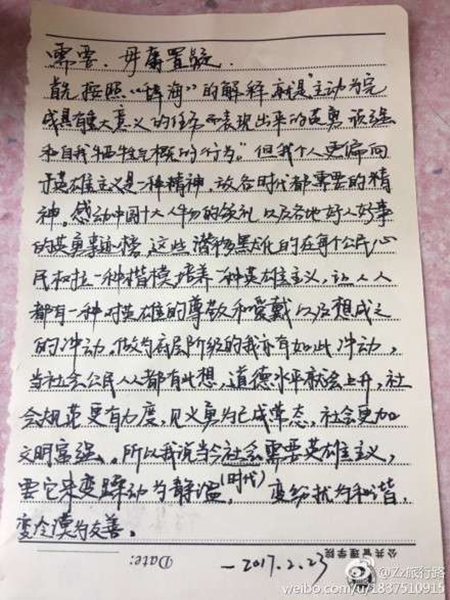 需要，毋庸置疑。
首先按照"辞海"的解释就是"主动为完
成具有重大意义的任务而表现出来的英勇、顽强
和自我牺牲气概的行为。"但我个人更偏向
于英雄主义是一种精神，放各时代都需要的精
神。感动中国十大人物的颁礼以及各地好人好事
的英勇事迹榜，这些潜移默化的在每个公民心
民树立一种楷模，培养一种英雄主义，让人人
都有一种对英雄的尊敬和爱戴以及想成之
的冲动，做为底层阶级的我亦有如此冲动，
当社会公民人人都有此想，道德水平就会上升，社
会规范更有力度，见义勇为已成常态，社会更加
文明富强、所以我说当今社会需要英雄主义，
要它来变躁动为静谧(时代)变纷扰为和谐，
变冷漠为友善。
公共管理学院
Date: —2017.2.23
@Zz旅行路
weibo.com/u/1837510915